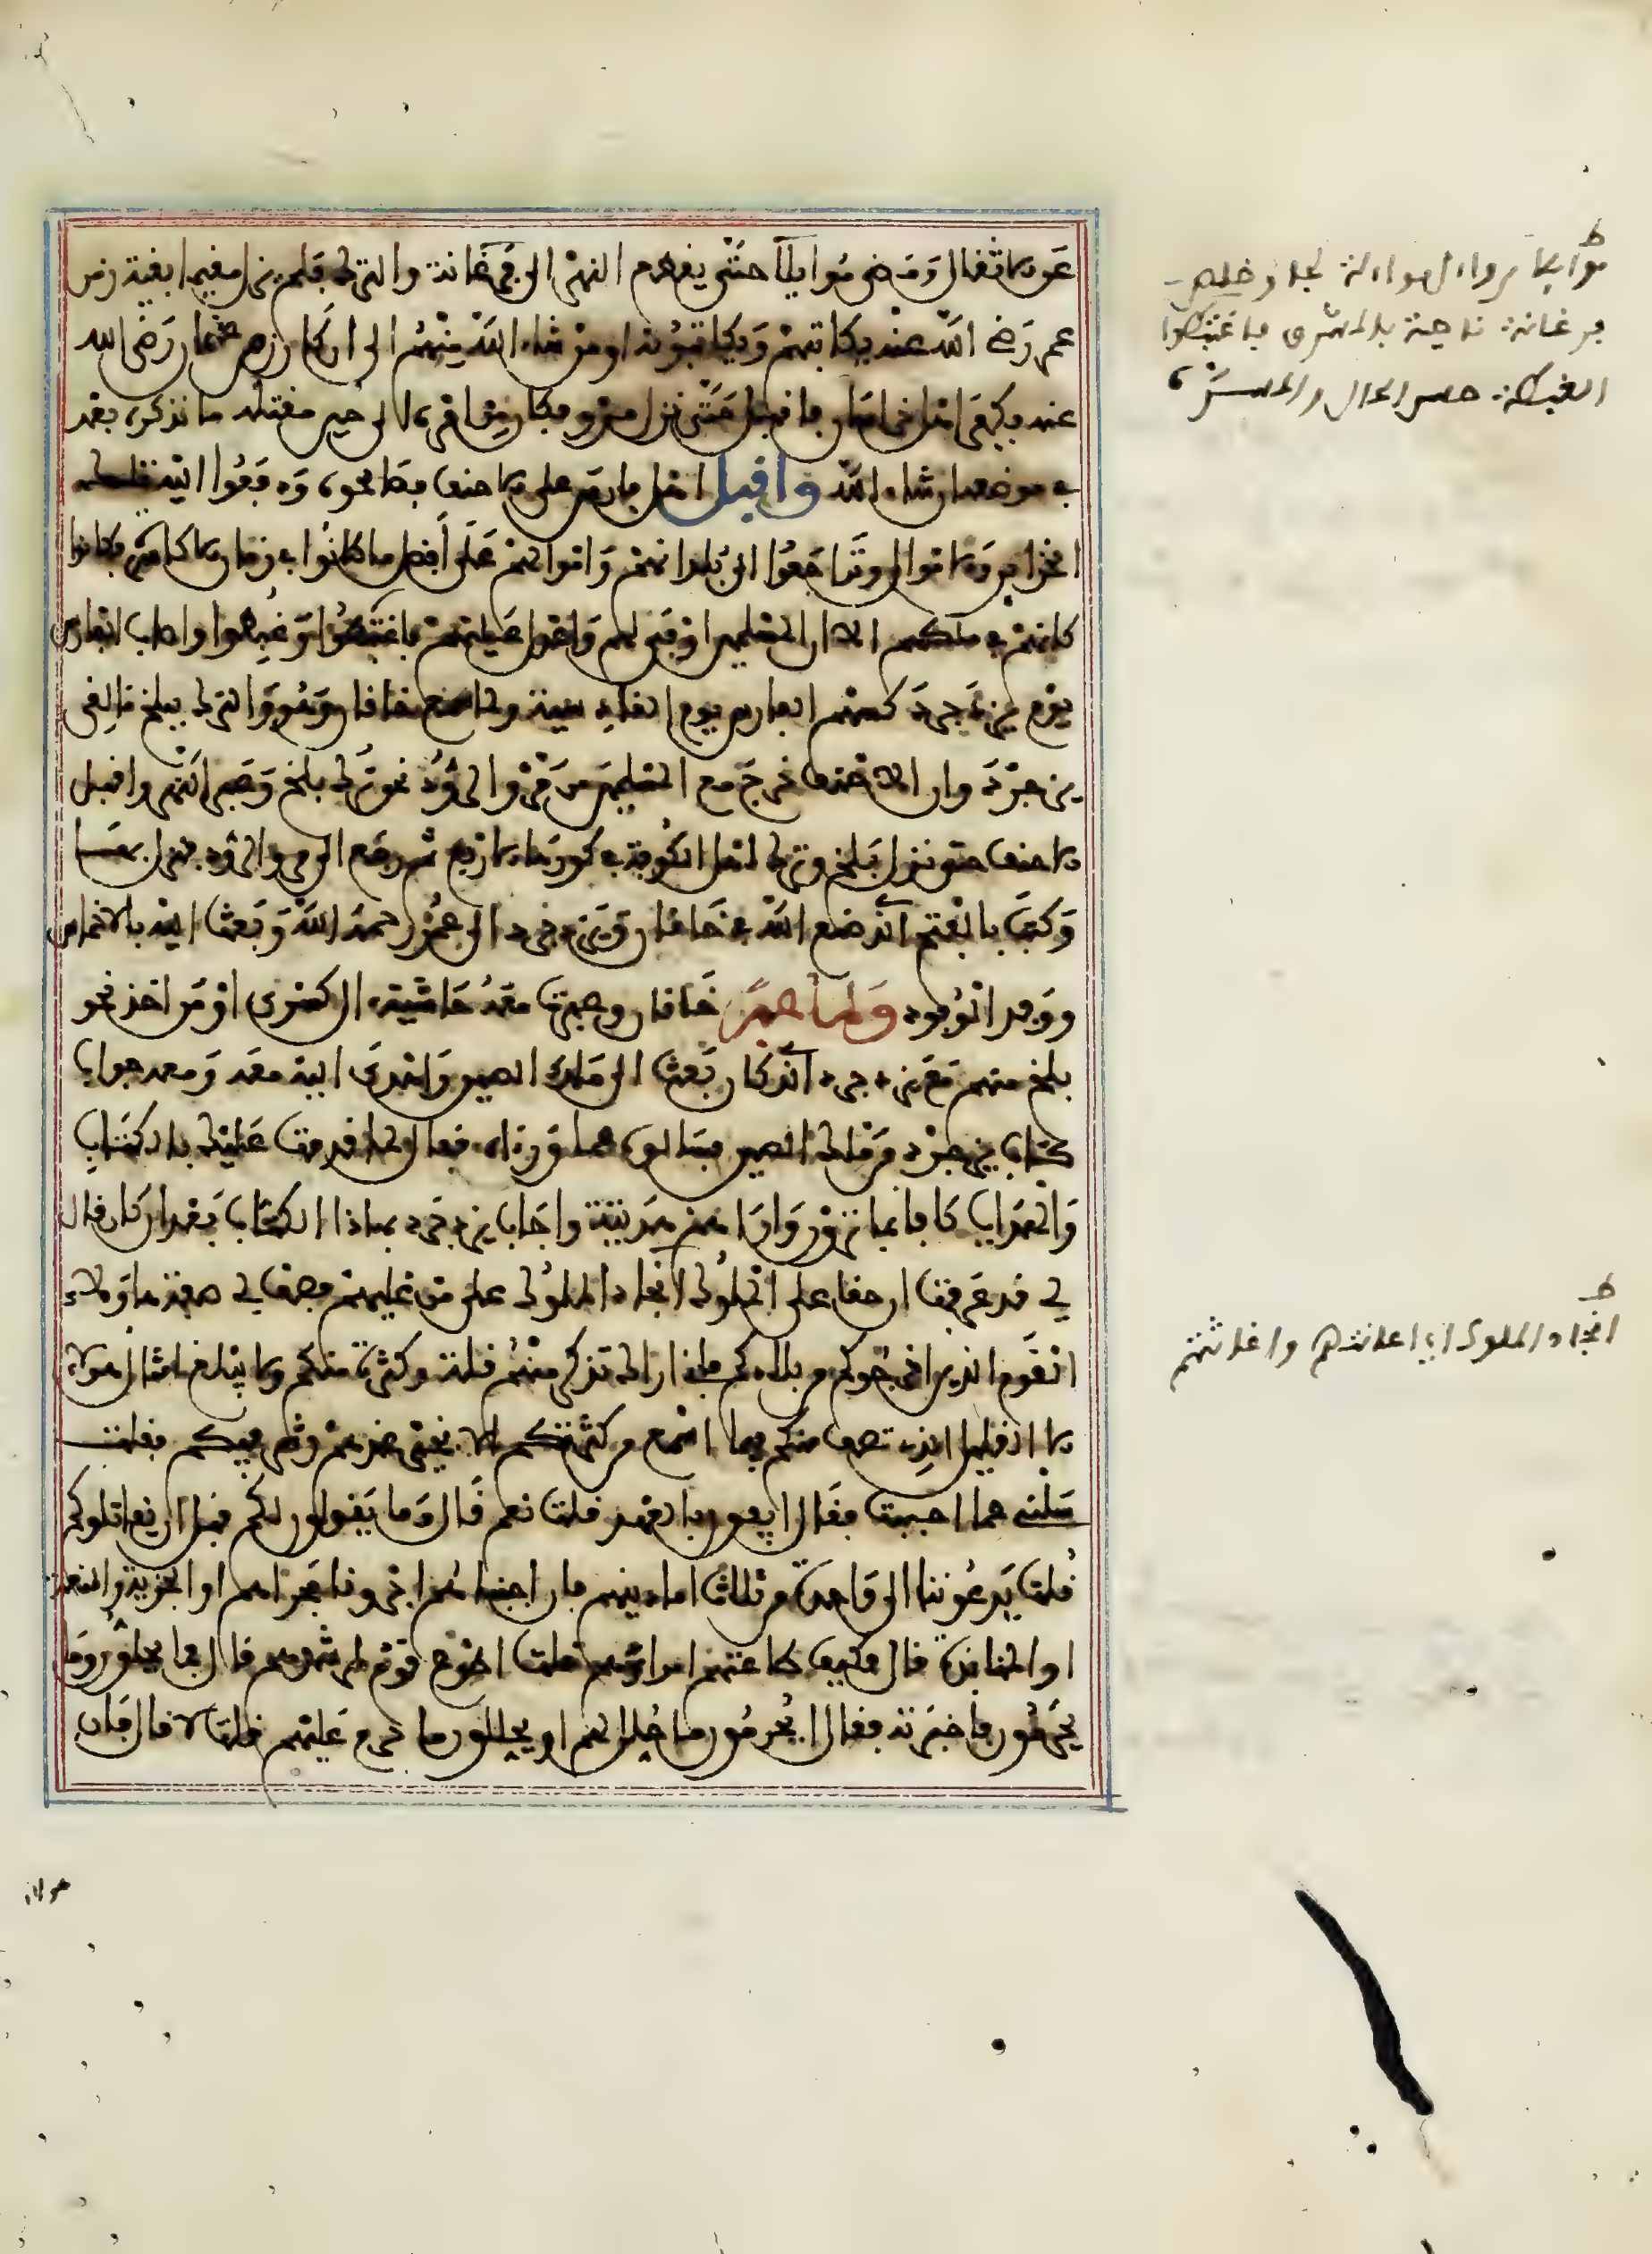 عن الاثقال ومضى موايلا حتى يقطع النهر الى فرغانة والترك فلم يزل مقيما بقية زمن
عمر رضي الله عنه يكاتبهم ويكاتبونه او من شاء الله منهم الى ان كان زمن عثمان رضي الله
عنه فكفر اهل خراسان فاقبل حتى نزل مرو فكان من امره الى حين مقتله ما نذكره بعد
في موضعه ان شاء الله واقبل اهل فارس على الاحنف فصالحوه ودفعوا اليه تلك
الخزاين والاموال وتراجعوا الى بلدانهم واموالهم على افضل ما كانوا في زمان الاكاسرة فكانوا
كانهم في ملكهم الا ان المسلمين اوفى لهم واعدل عليهم فاغتبطوا وغبطوا واصاب الفارس
يوم يزدجرد كسهم الفارس يوم القادسية ولما سمع خاقان وهو والترك ببلخ ما لقي
يزدجرد وان الاحنف خرج مع المسلمين من مرو الروذ نحوه ترك بلخ وعبر النهر واقبل
الاحنف حتى نزل بلخ ونزل اهل الكوفة في كورها الاربع ثم رجع الى مرو الروذ فنزل بها
وكتب بالفتح الذي صنع الله في خاقان ويزدجرد الى عمر رحمه الله وبعث اليه بالاخماس
ووفد الوفود ولما عبر خاقان وعبرت معه حاشية ال كسرى او من اخذ نحو
بلخ منهم مع يزدجرد الذي كان بعث الى ملك الصين واهدى اليه معه ومعه جواب
كتاب يزدجرد من ملك الصين فسالوه عما وراءه فقال لما قدمت عليه بالكتاب
والهدايا كافانا بما ترون واراهم هديته واجاب يزدجرد بهاذا الكتاب بعد ان كان قال
لي قد عرفت ان حقا على الملوك انجاد الملوك على من غلبهم فصف لي صفة هاولاء
القوم الذين اخرجوكم من بلادكم فاني اراك تذكر منهم قلة وكثرة منكم ولا يبلغ امثال هولاء
الاقليل الذي تصف منكم فيما اسمع من كثرتكم الا بخير عندهم وشر فيكم فقلت
سلني عما احببت فقال ايفون بالعهد قلت نعم قال وما يقولون لكم قبل ان يقاتلوكم
قلت يدعوننا الى واحدة من ثلاث اما دينهم فان اجبناهم اجرونا مجراهم او الجزية والمنعة
او المنابذة قال فكيف طاعتهم امراءهم قلت اطوع قوم لمرشدهم قال فما يحلون وما
يحرمون فاخبرته فقال ايحرمون ما حلل لهم او يحللون ما حرم عليهم قلت لا قال فان
هولاء
ط
موايلا من وال موايلة لجا وخلص
فرغانة ناحية بالمشرق فاغتبطوا
الغبطة حسن الحال والمسرة
ط
انجاد الملوك اي اعانتهم واغاثتهم